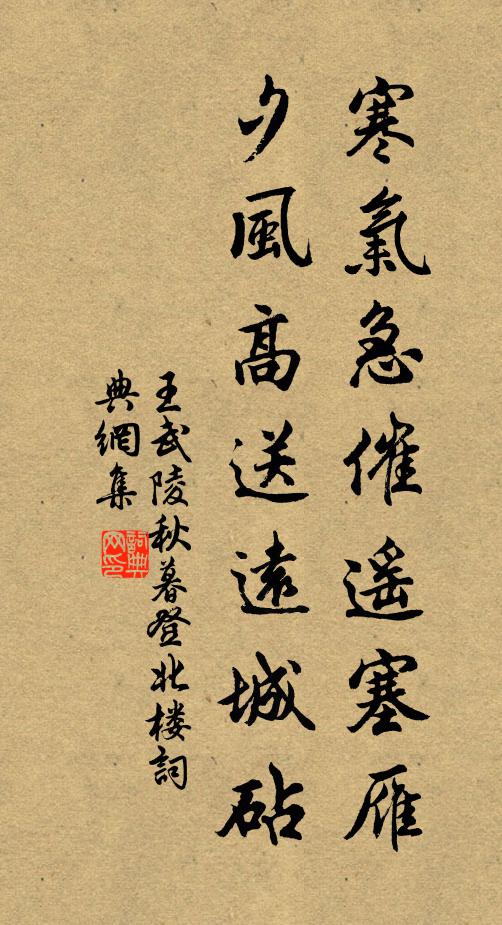 寒氣急催遥塞雁
夕風高送遠城砧
王武陵秋暮登北楼詞
典網集
詞典网印